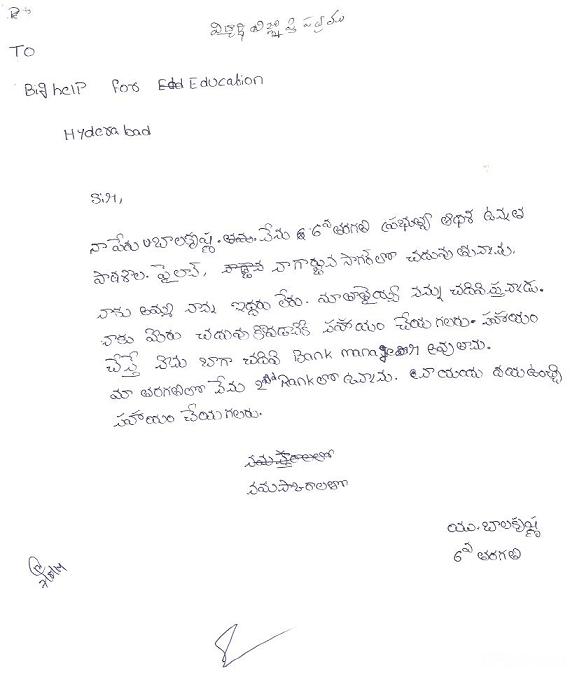 విద్యార్థి విజ్ఞప్తి పత్రము
TO
Big help for Education
Hyderabad
Sir,
నా పేరు బాలకృష్ణ. నేను 6వ తరగతి ప్రభుత్వ ఉన్నత
పాఠశాల. పైలాన్, నాగార్జున సాగర్ లో చదువుతున్నాను.
నాకు అమ్మ నాన్న ఇద్దరు లేరు. మా తాతయ్య నన్ను చదివిస్తున్నాడు.
నాకు మీరు చదువు సహాయం చేయగలరు. సహాయం
చేస్తే నేను బాగా చదివి Bank manager అవుతాను.
మా తరగతిలో నేను 2nd Rank లో ఉన్నాను. దయఉంచి
సహాయం చేయగలరు.
నమస్కారాలతో
యు. బాలకృష్ణ
6వ తరగతి